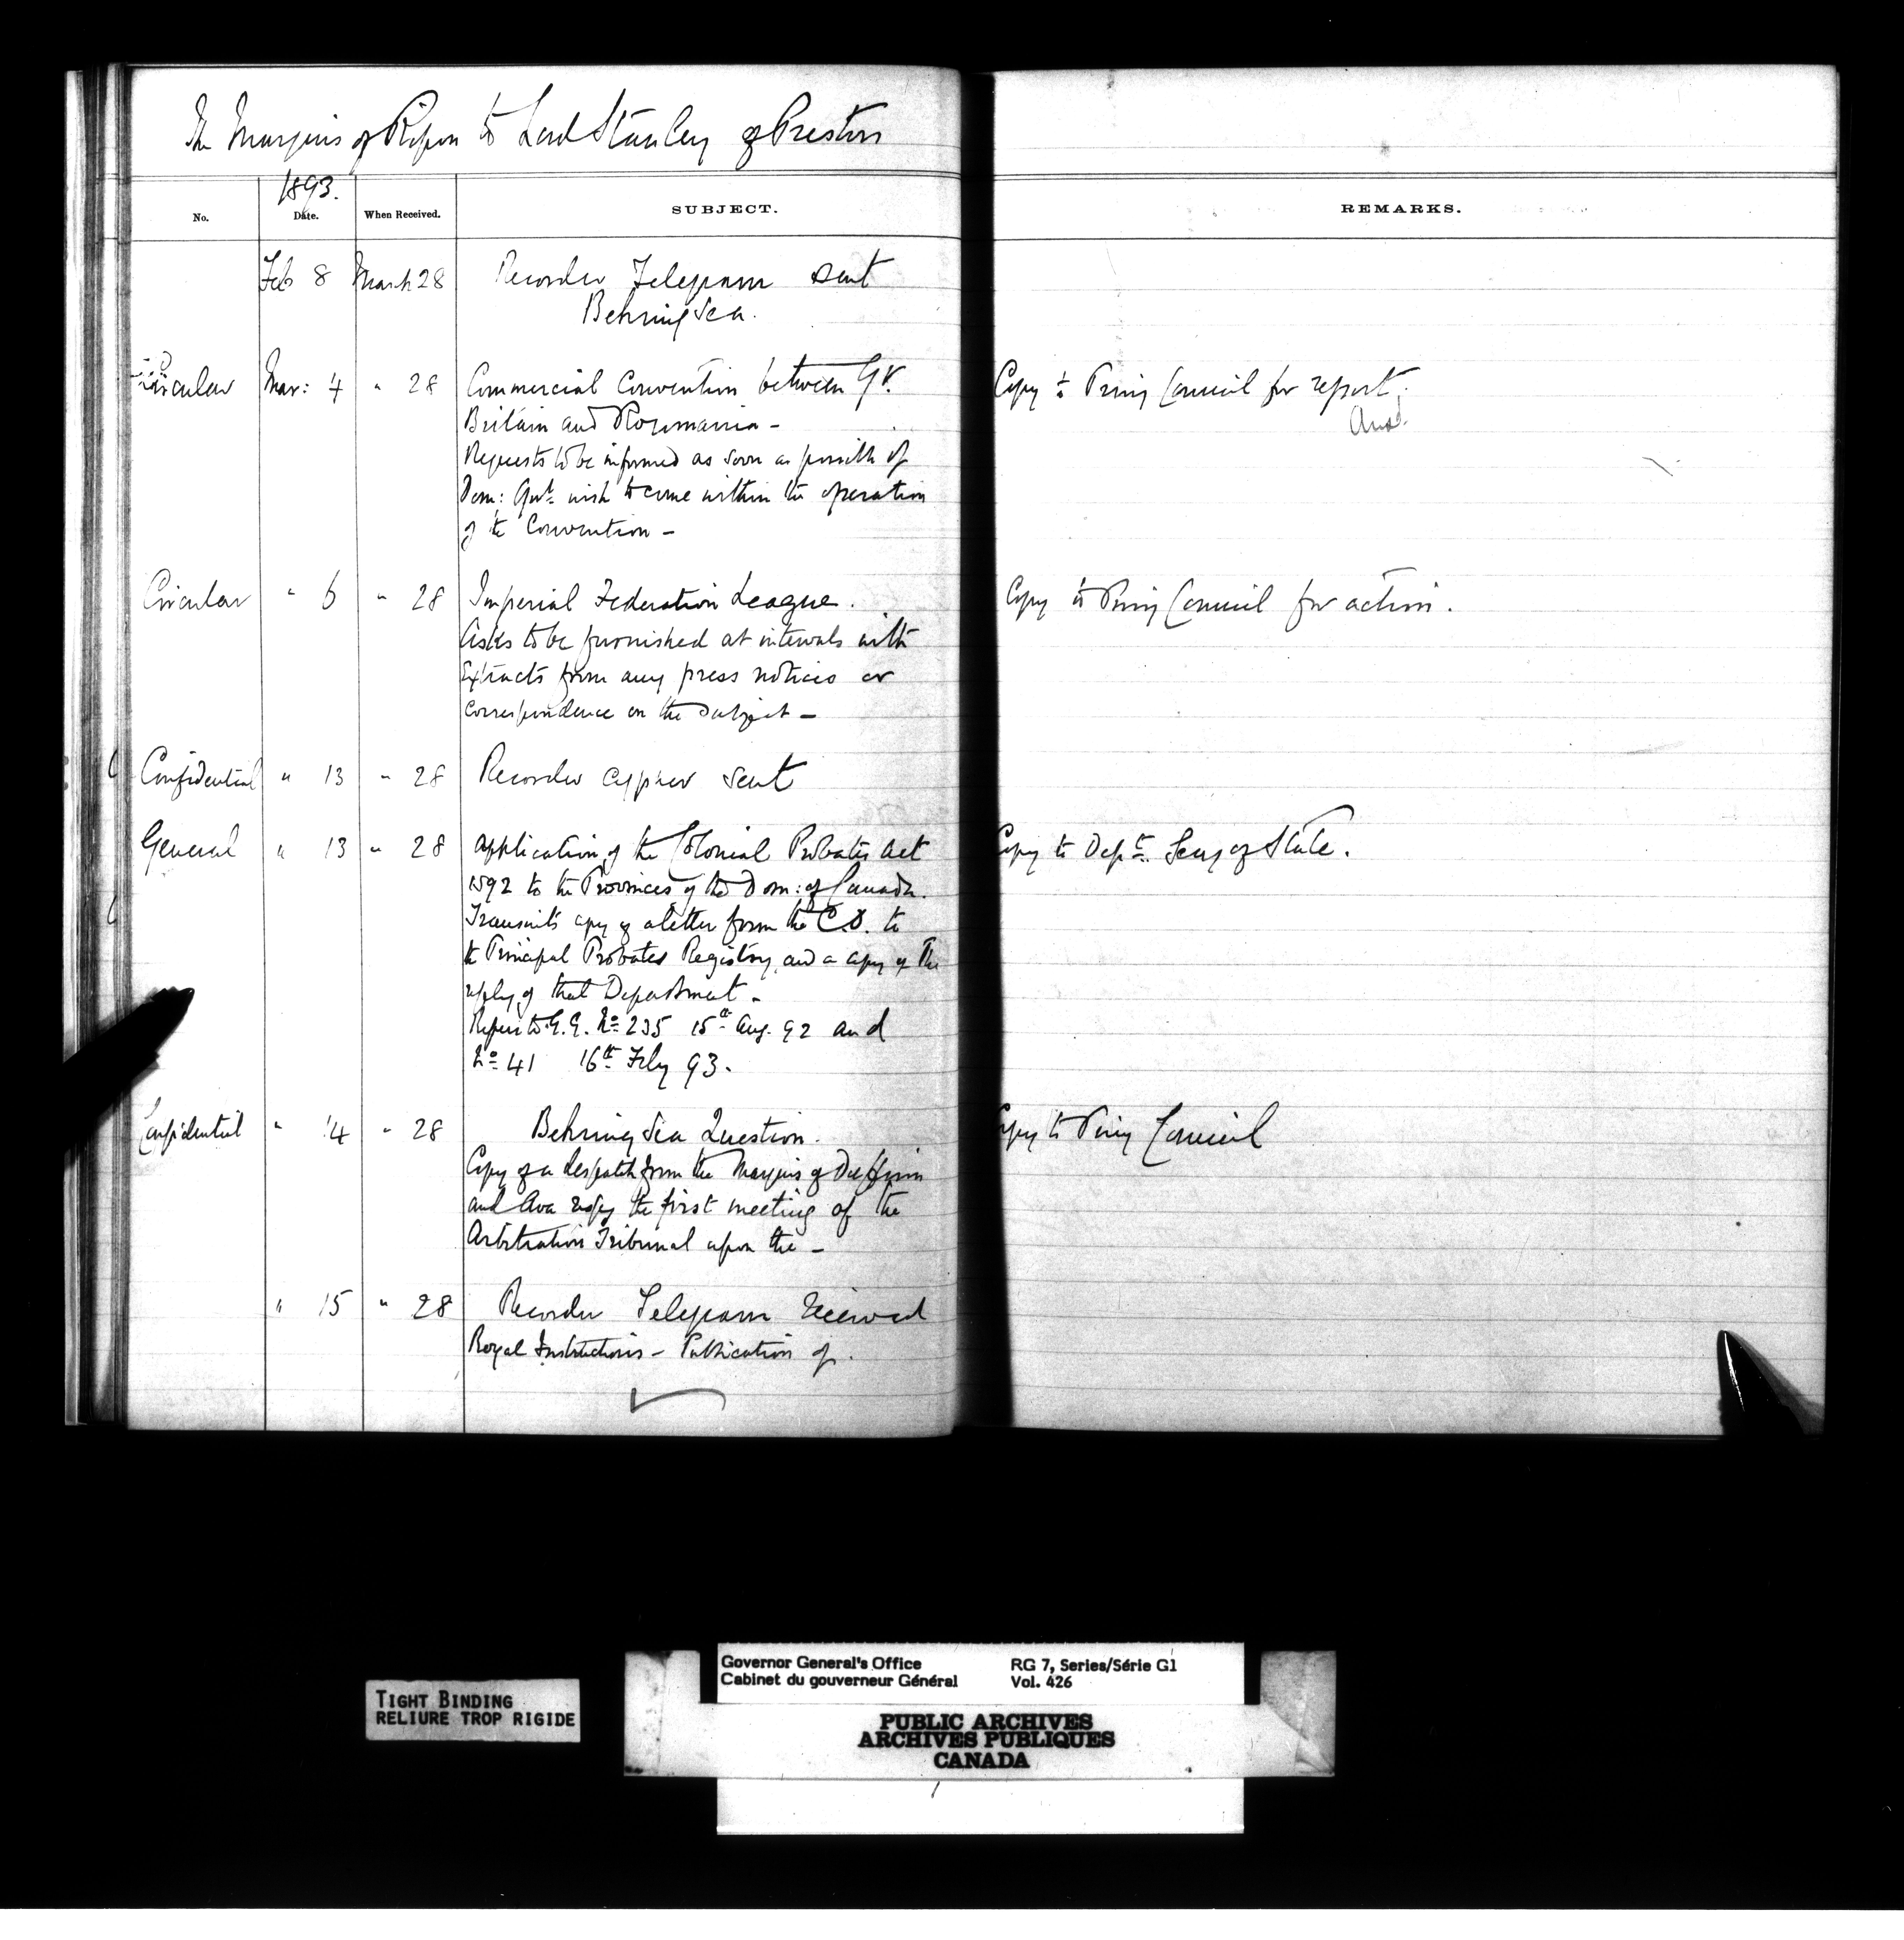 The Marquis of Ripon to Lord Stanley of Preston
1893.
No. Date. When Received. SUBJECT. REMARKS.
Feb 8 March 28 Recorder Telegram sent
Behring Sea.
Circular Mar: 4 " 28 Commercial Convention between Gt. Copy to Privy Council for report.
Britain and Roumania - Ansd.
Requests to be informed as soon as possible if
Dom: Govt. wish to come within the operation
of the Convention -
Circular " 6 " 28 Imperial Federation League. Copy to Privy Council for action.
Asks to be furnished at intervals with
Extracts from any press notices or
correspondence on the subject -
Confidential " 13 " 28 Recorder cypher sent
General " 13 " 28 Application of the Colonial Probates Act Copy to Dept. Secy of State.
1892 to the Provinces of the Dom: of Canada.
Transmits copy of a letter from the C.O. to
the Principal Probates Registry, and a copy of the
reply of that Department -
Refers to G.G. No. 235 15th Aug. 92 and
No. 41 16th Feby 93.
Confidential " 14 " 28 Behring Sea Question. Copy to Privy Council
Copy of a despatch from the Marquis of Dufferin
and Ava respg the first meeting of the
Arbitration Tribunal upon the -
" 15 " 28 Recorder Telegram received
Royal Instructions - Publication of.
TIGHT BINDING
RELIURE TROP RIGIDE
Governor General's Office RG 7, Series/Série G1
Cabinet du gouverneur Général Vol. 426
PUBLIC ARCHIVES
ARCHIVES PUBLIQUES
CANADA